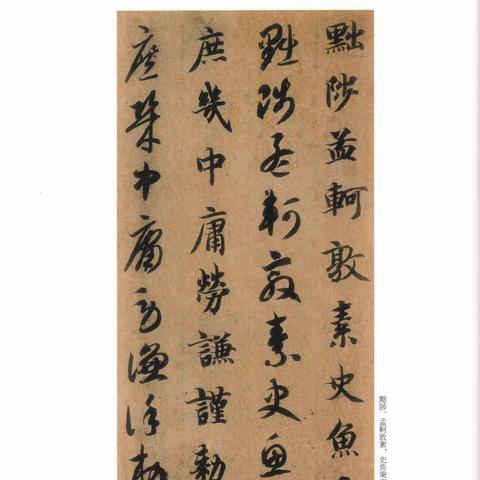 黜陟孟軻敦素史魚
黜陟孟軻敦素史魚
庶幾中庸勞謙謹勅
庶幾中庸勞謙謹勅
黜陟。孟軻敦素，史魚秉